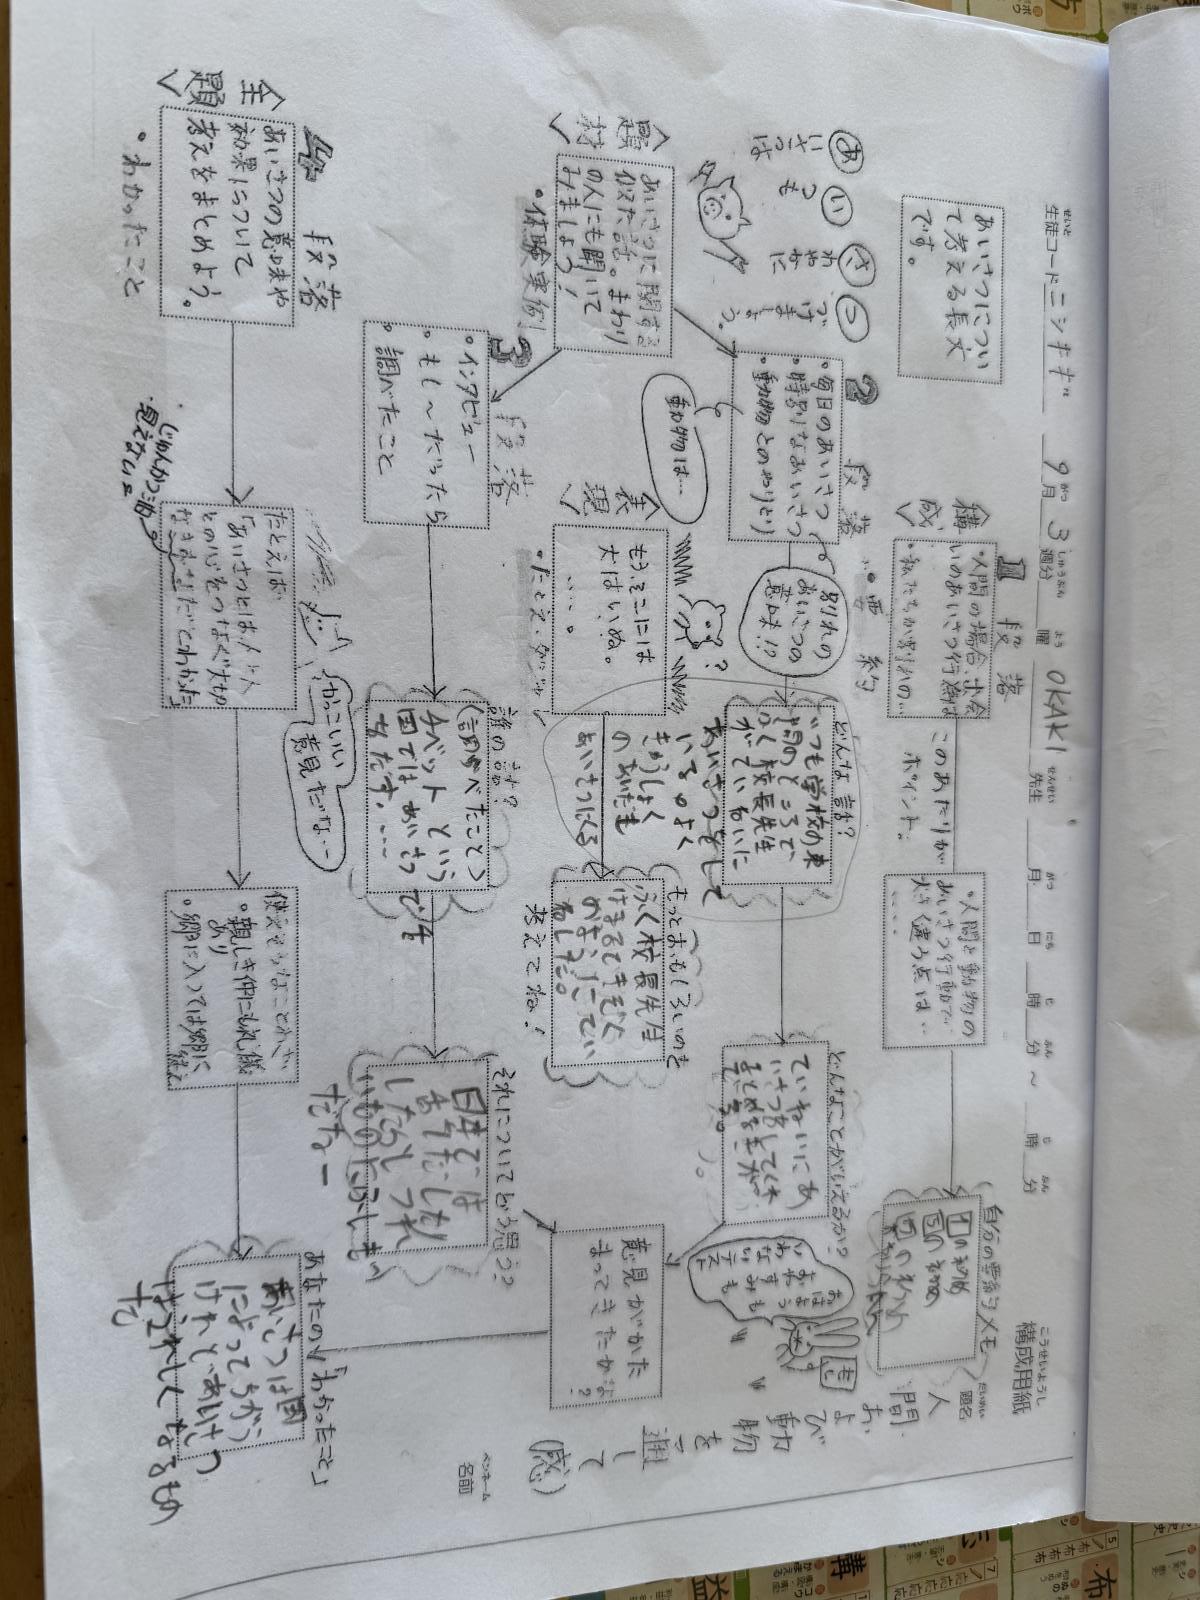 構成用紙
こうせいようし
題名
だいめい
人間および動物を通して(感)
ペンネーム
名前
生徒コード ニシギギ 9月 3週分 曜 OKAKI 先生 月 日 時 分 ~ 時 分
あいさつについ
て考える長文
です。
あ いさつは
い つも
さ わやかに
つ づけましょう。
<構成>
1段落
・人間の場合、出会
いのあいさつ行動は
・私たちが別れの…
このあたりが
ポイント。
・人間と動物の
あいさつ行動で
大きく違う点は…
・・・・
自分の要約メモ
1の初め
5の初め
7の
<題材>
あいさつに関する
似た話。まわり
の人にも聞いて
みましょう!
・体験実例
2段落
・毎日のあいさつ
・特別なあいさつ
・動物とのやりとり
動物は…
要約
別れの
あいさつの
意味!?
どんな話?
いつも学校の東
門のところで、
ふく校長先生
がていねいに
あいさつをして
いるのよく
きゅうしょく
のあいだも
あいさつにくる
どんなことがいえるか?
ていねいにあ
いさつをしてくれ
まじめな先生
である。
おはよう
おやすみも
いわない
テスト
<表現>
もうそこには
犬はいぬ。
・・・・。
・たとえ・ダジャレ
もっとおもしろいのを
ふく校長先生
はまるできぞく
かまうにてい
ねいだ。
考えてね!
意見がかた
まってきたかな?
3段落
・インタビュー
・もし~だったら
・調べたこと
誰の話?
(調べたこと)
チベットという
国ではあいさつ
でしたを
だす。…
それについてどう思う?
日本では
舌をだし
したらしつれ
いものにふしぎ
だねー
<主題>
4段落
あいさつの意味や
効果について
考えをまとめよう。
・わかったこと
・じゅんかつ油
・見えない
たとえば
「あいさつとは人と人
との心をつなぐ大切
なきずなだとわかった」
かっこいい
意見だな…
使えそうなことわざ
・親しき仲にも礼儀
あり
・郷に入っては郷に
従え
あなたの「わかったこと」
あいさつは国
によってちがう
けれどあいさつ
はうれしくなるもの
だ